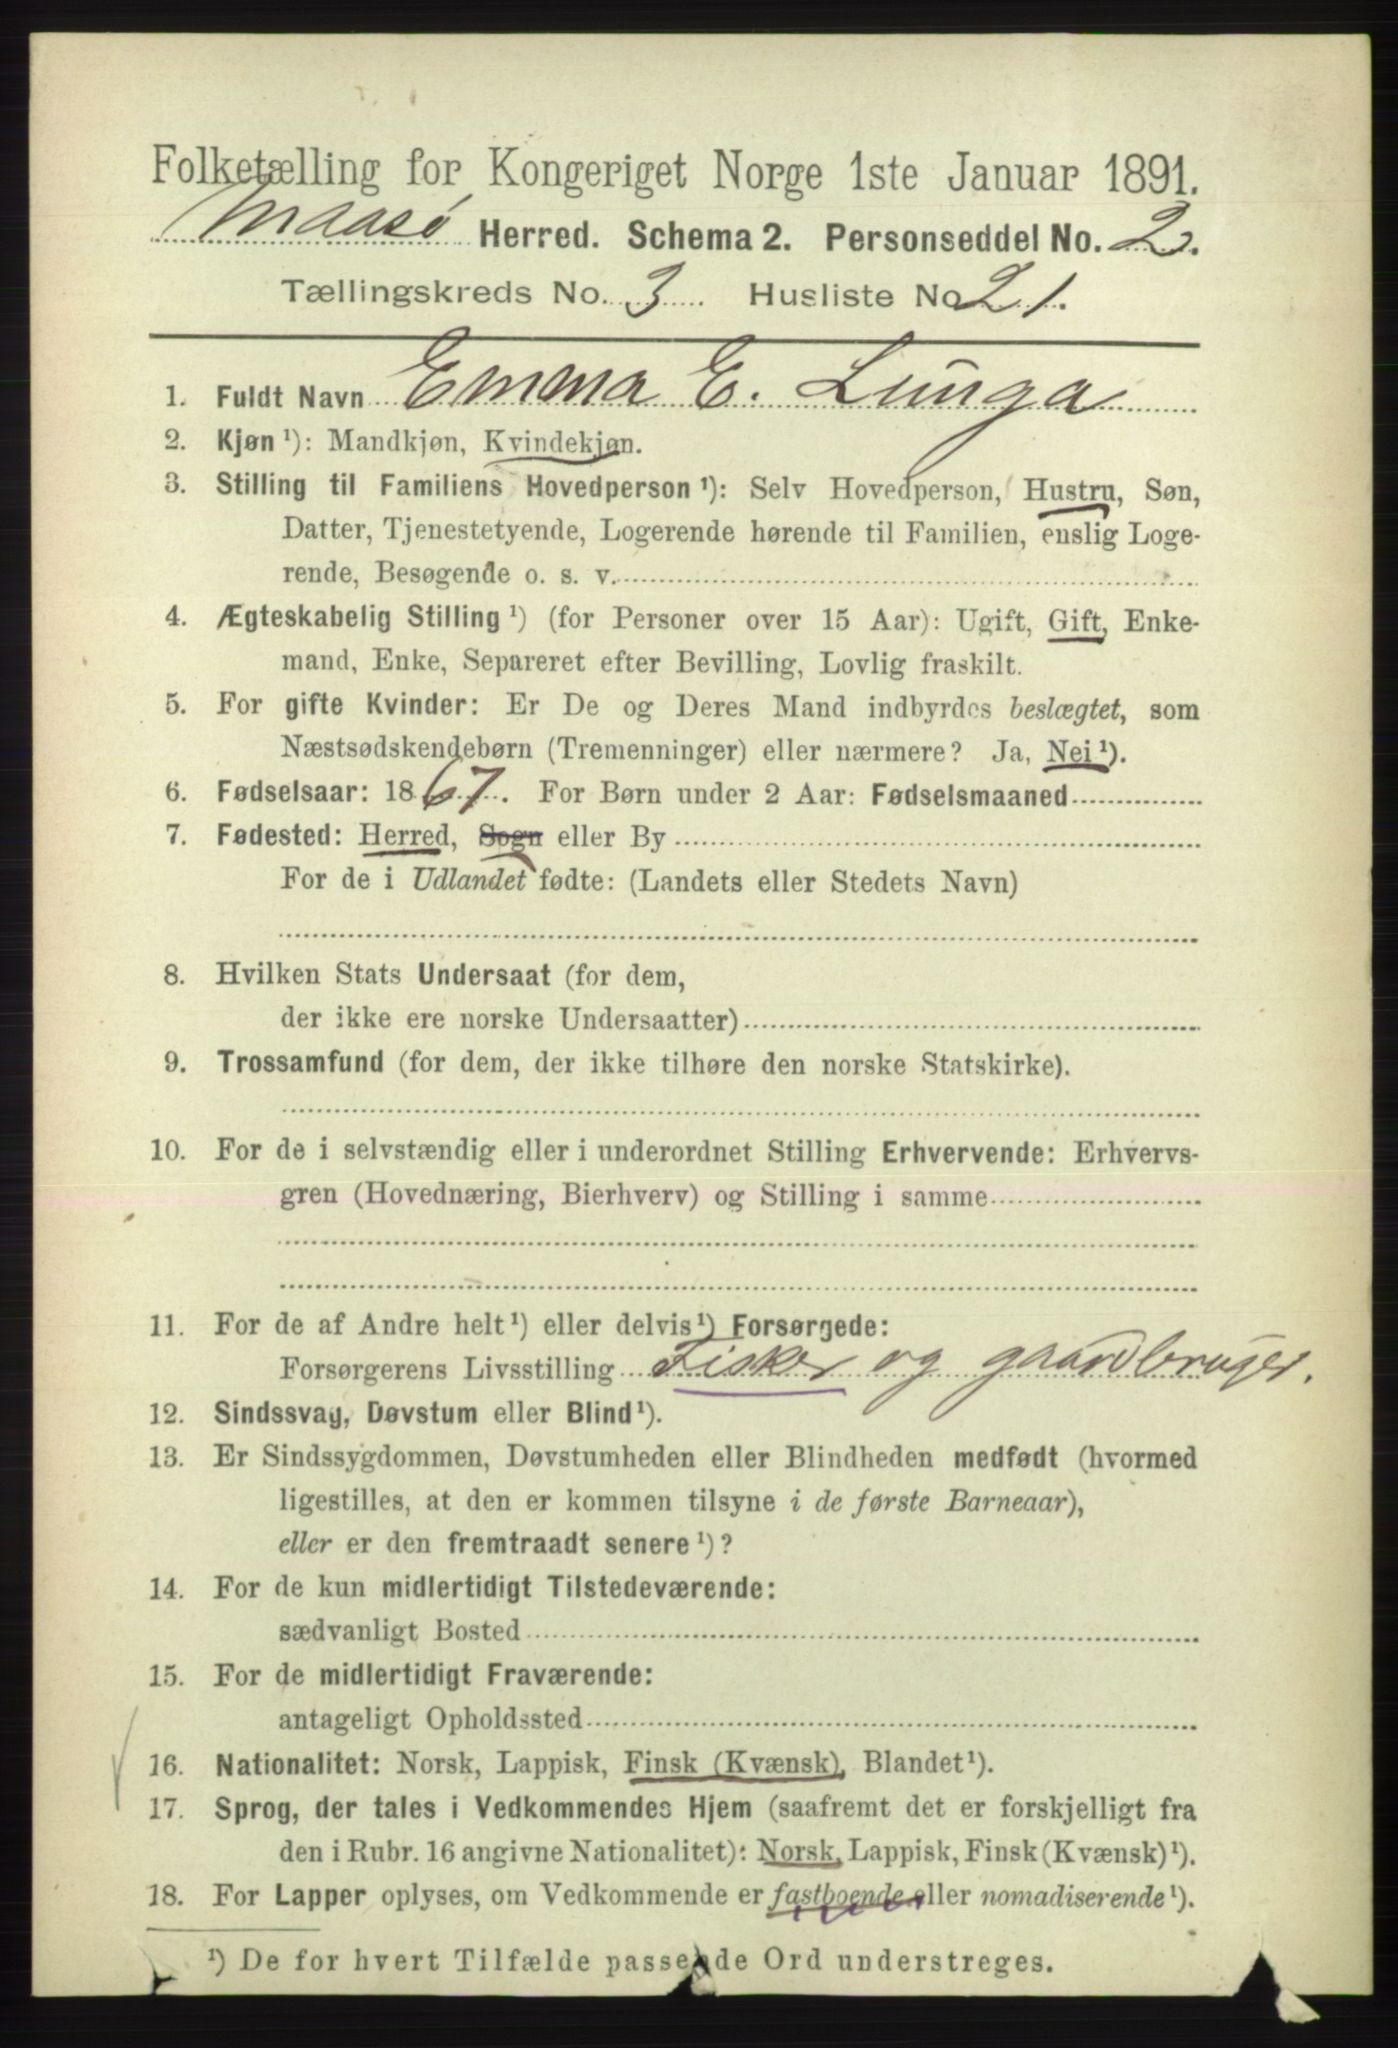 Folketælling for Kongeriget Norge 1ste Januar 1891.
Maasö Herred. Schema 2. Personseddel No. 2.
Tællingskreds No. 3 Husliste No 21.
1. Fuldt Navn Emma E. Lunga
2. Kjøn ¹): Mandkjøn, Kvindekjøn.
3. Stilling til Familiens Hovedperson ¹): Selv Hovedperson, Hustru, Søn,
Datter, Tjenestetyende, Logerende hørende til Familien, enslig Loge-
rende, Besøgende o. s. v.
4. Ægteskabelig Stilling ¹) (for Personer over 15 Aar): Ugift, Gift, Enke-
mand, Enke, Separeret efter Bevilling, Lovlig fraskilt.
5. For gifte Kvinder: Er De og Deres Mand indbyrdes beslægtet, som
Næstsødskendebørn (Tremenninger) eller nærmere? Ja, Nei ¹).
6. Fødselsaar: 1867. For Børn under 2 Aar: Fødselsmaaned
7. Fødested: Herred, Sogn eller By
For de i Udlandet fødte: (Landets eller Stedets Navn)
8. Hvilken Stats Undersaat (for dem,
der ikke ere norske Undersaatter)
9. Trossamfund (for dem, der ikke tilhøre den norske Statskirke).
10. For de i selvstændig eller i underordnet Stilling Erhvervende: Erhvervs-
gren (Hovednæring, Bierhverv) og Stilling i samme
11. For de af Andre helt ¹) eller delvis ¹) Forsørgede:
Forsørgerens Livsstilling Fisker og gaardbruger.
12. Sindssvag, Døvstum eller Blind ¹).
13. Er Sindssygdommen, Døvstumheden eller Blindheden medfødt (hvormed
ligestilles, at den er kommen tilsyne i de første Barneaar),
eller er den fremtraadt senere ¹)?
14. For de kun midlertidigt Tilstedeværende:
sædvanligt Bosted
15. For de midlertidigt Fraværende:
antageligt Opholdssted
16. Nationalitet: Norsk, Lappisk, Finsk (Kvænsk), Blandet ¹).
17. Sprog, der tales i Vedkommendes Hjem (saafremt det er forskjelligt fra
den i Rubr. 16 angivne Nationalitet): Norsk, Lappisk, Finsk (Kvænsk) ¹).
18. For Lapper oplyses, om Vedkommende er fastboende eller nomadiserende ¹).
¹) De for hvert Tilfælde passende Ord understreges.